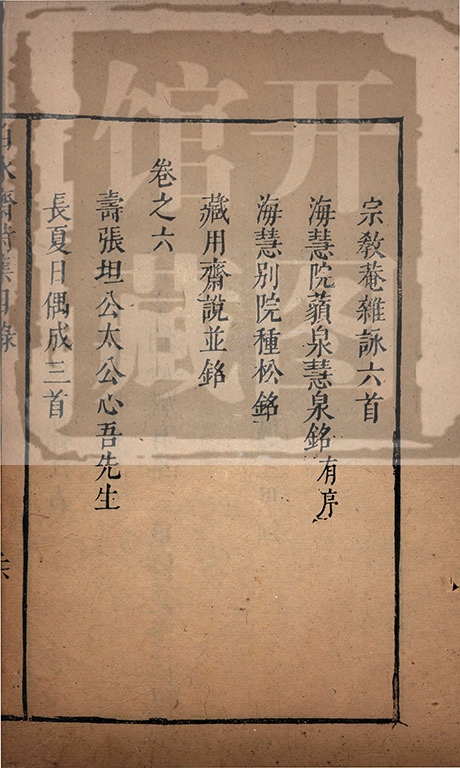 宗教菴雜詠六首
海慧院蘋泉慧泉銘有序
海慧别院種松銘
藏用齋說並銘
卷之六
壽張坦公太公心吾先生
長夏日偶成三首
白水齋詩集目錄
六
开图
馆藏